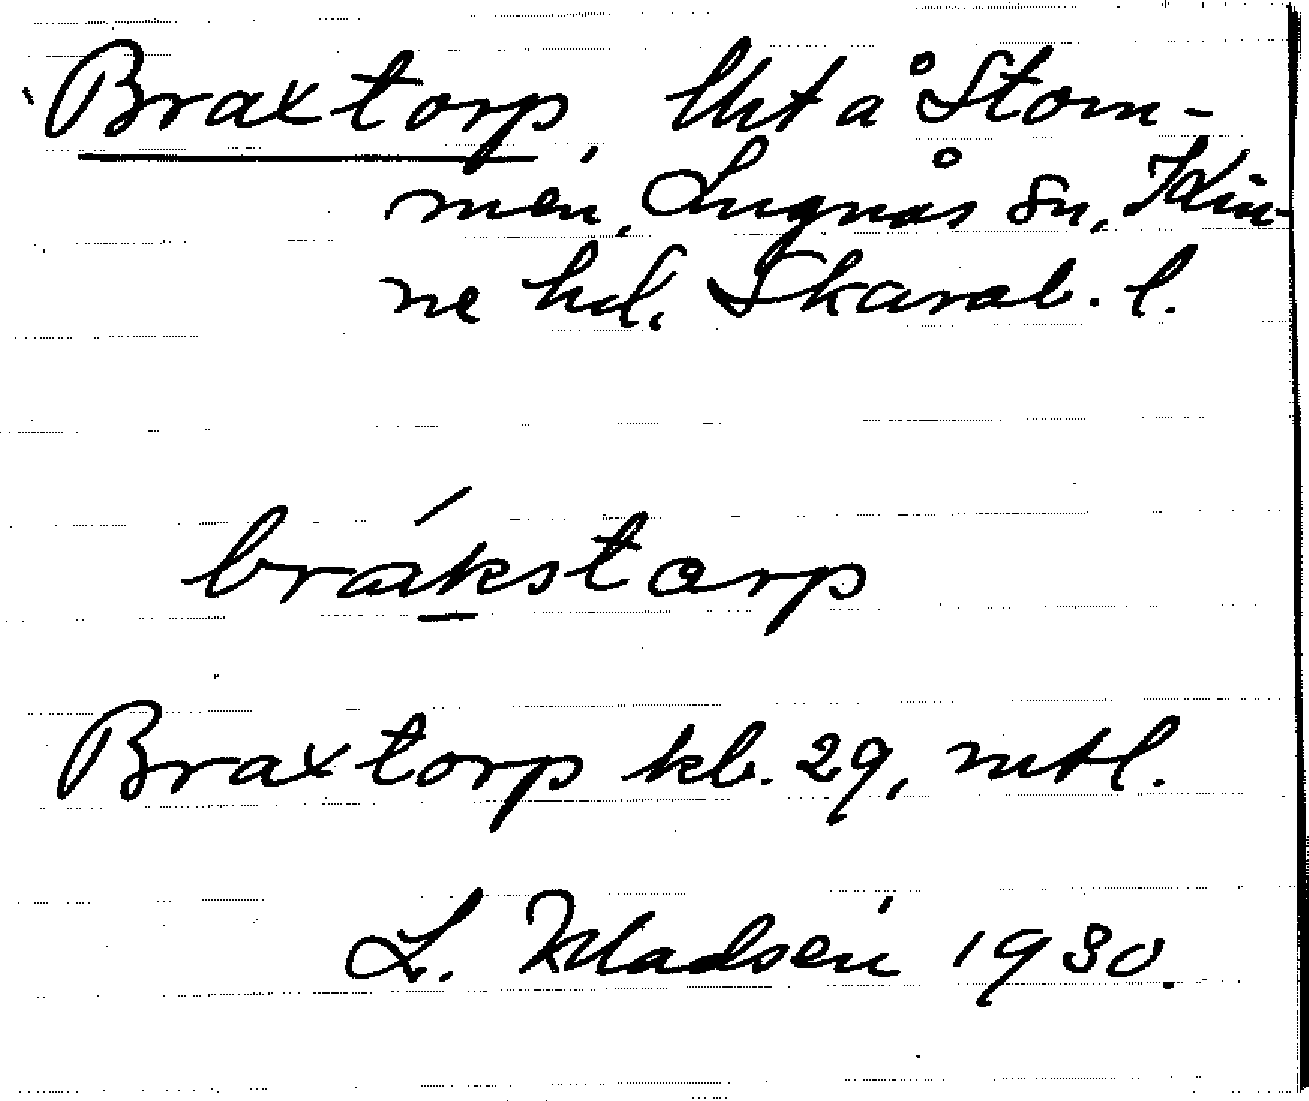 Braxtorp, lht å Stom-
men, Lugnås sn, Kin-
ne hd, Skarab. l.
brákstorp
Braxtorp kb. 29, mtl.
L. Madsén 1930.